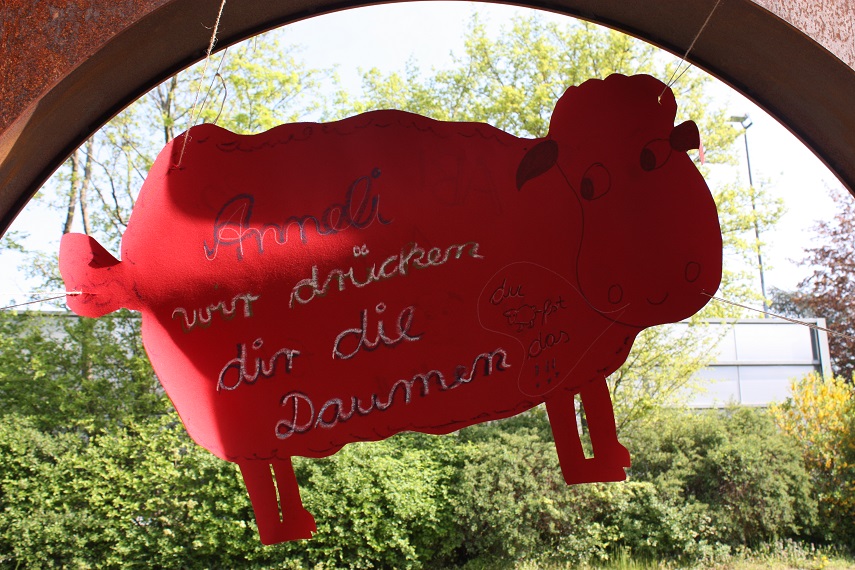 Anneli
wir drücken
dir die
Daumen
du
das
!!!